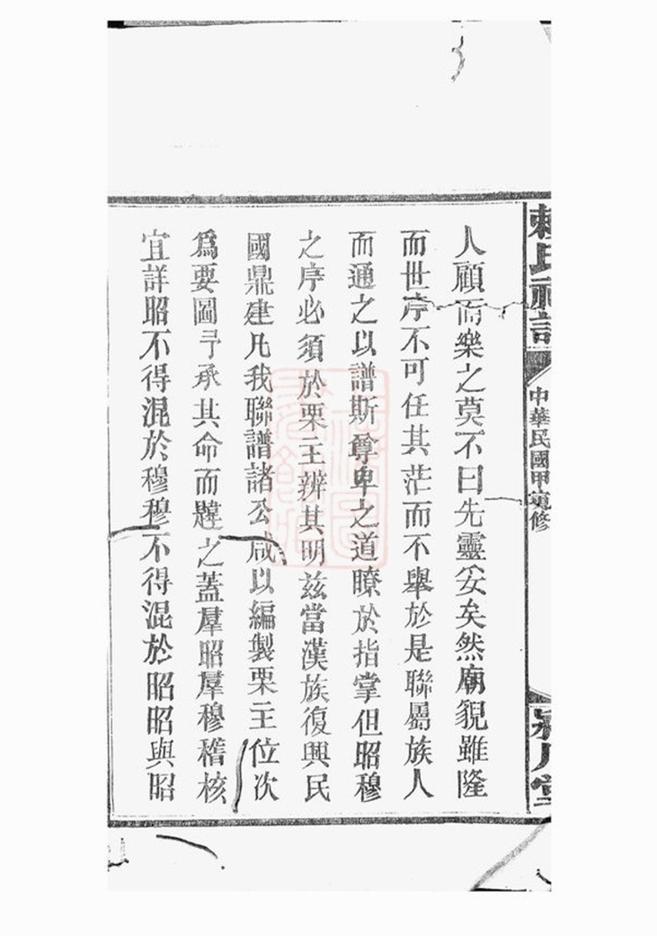 賴氏祠誌
中華民國甲寅修
人顧而樂之莫不曰先靈安矣然廟貌雖隆
而世序不可任其茫而不舉於是聯屬族人
而通之以譜斯尊卑之道瞭於指掌但昭穆
之序必須於栗主辨其明兹當漢族復興民
國鼎建凡我聯譜諸公咸以編製栗主位次
爲要圖予承其命而韙之蓋羣昭羣穆稽核
宜詳昭不得混於穆穆不得混於昭昭與昭